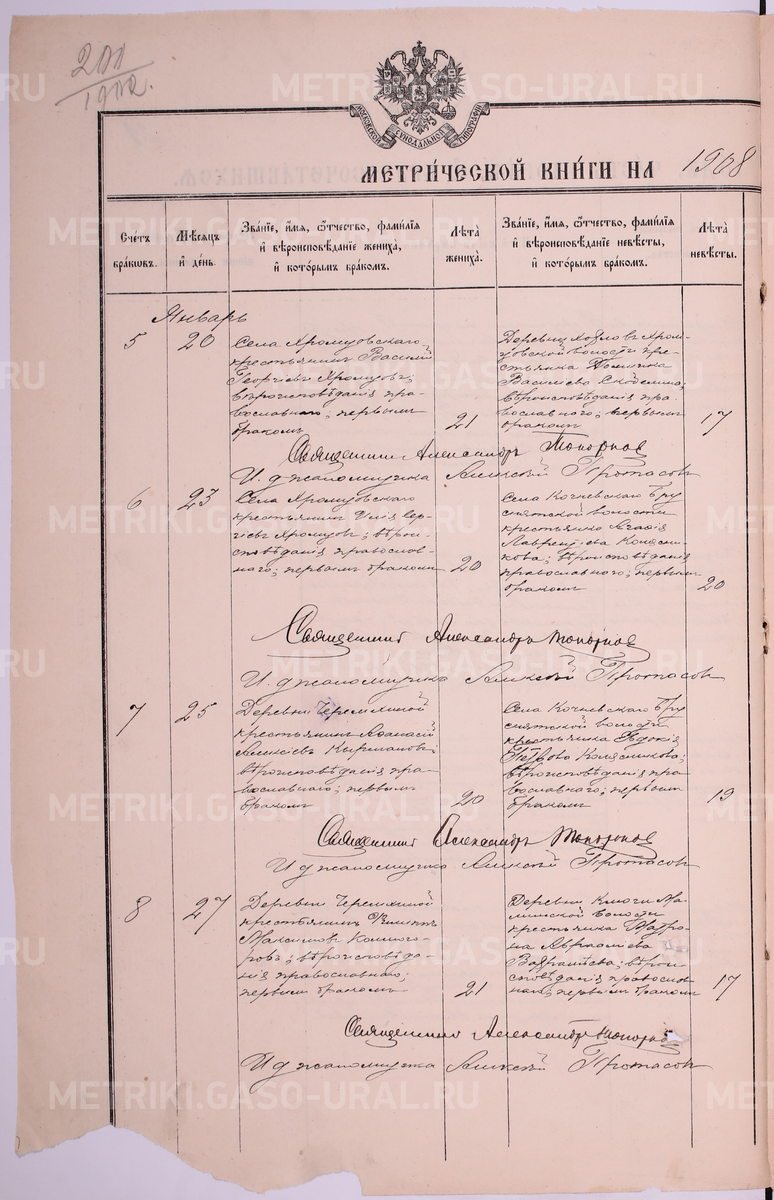 201
1902.
МОСКОВСКОЙ СѴНОДАЛЬНОЙ ТИПОГРАФІИ
МЕТРИ́ЧЕСКОЙ КНИ́ГИ НА 1908
Сче́тъ бра́ковъ.
Мѣ́сяцъ и҆ де́нь.
Зва́нїе, и҆́мѧ, ѻ҆́тчество, фами́лїѧ
и҆ вѣроисповѣ́данїе жениха̀,
и҆ кото́рымъ бра́комъ.
Лѣ̀та жениха̀.
Зва́нїе, и҆́мѧ, ѻ҆́тчество, фами́лїѧ
и҆ вѣроисповѣ́данїе невѣ́сты,
и҆ кото́рымъ бра́комъ.
Лѣ̀та невѣ́сты.
Январь
5
20
Села Хромцовскаго
крестьянинъ Василій
Георгіевъ Хромцовъ;
вѣроисповѣданія пра-
вославнаго; первымъ
бракомъ
21
Деревни Хром-
цовской волости кре-
стьянка
Васильева
вѣроисповѣданія пра-
вославнаго; первымъ
бракомъ
17
Священникъ Александръ Топорков
И. д. псаломщика Алексѣй Протасовъ
6
23
Села Хромцовскаго
крестьянинъ Илія Сер-
гіевъ Хромцовъ; вѣрои-
сповѣданія православ-
наго; первымъ бракомъ
20
Села Кочневскаго Бру-
снятской волости
крестьянка Агафія
Лаврентіева Колясни-
кова; вѣроисповѣданія
православнаго; первымъ
бракомъ
20
Священникъ Александръ Топорков
И. д. псаломщика Алексѣй Протасовъ
7
25
Деревни Черемшиной
крестьянинъ Аѳанасій
Алексіевъ
вѣроисповѣданія пра-
вославнаго; первымъ
бракомъ
20
Села Кочневскаго Бру-
снятской волости
крестьянка Евдокія
Петрова Колясникова;
вѣроисповѣданія пра-
вославнаго; первымъ
бракомъ
19
Священникъ Александръ Топорков
И. д. псаломщика Алексѣй Протасовъ
8
27
Деревни Черемшиной
крестьянинъ Филиппъ
Максимовъ Комиого-
ровъ; вѣроисповѣда-
нія православнаго;
первымъ бракомъ
21
Деревни Ключи Ма-
минской волости
крестьянка Мавро-
на Аврааміева
вѣрои-
сповѣданія православ-
наго; первымъ бракомъ
17
Священникъ Александръ Топорков
И. д. псаломщика Алексѣй Протасовъ
METRIKI.GASO-URAL.RU